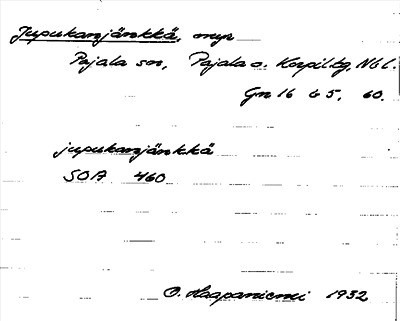 Jupukanjänkkä, myr
Pajala sn, Pajala o. Korpil. tg, Nbl.
Gn 16 b 5, 60.
jupukanjänkkä
SOA 460
O. Haapaniemi 1932